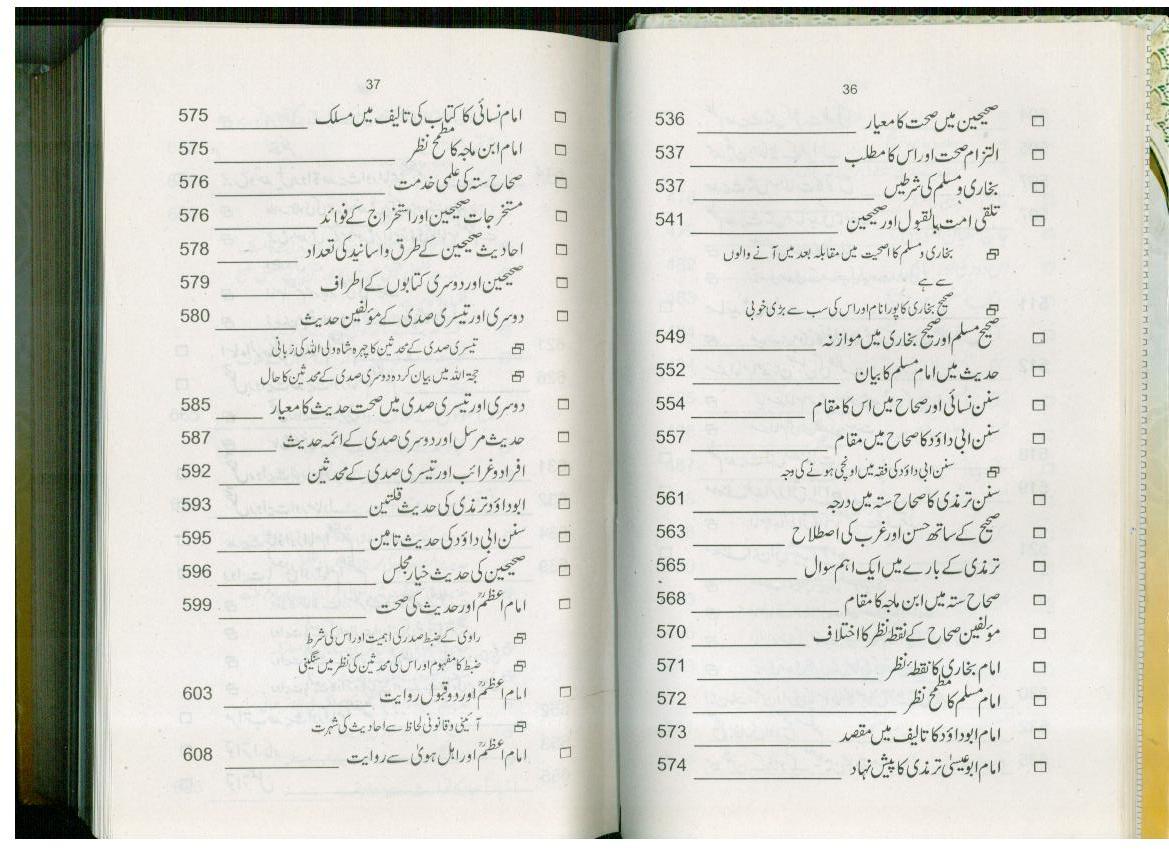 36
صحیحین میں صحت کا معیار 536
التزام صحت اور اس کا مطلب 537
بخاری و مسلم کی شرطیں 537
تلقی امت بالقبول اور صحیحین 541
بخاری و مسلم کا اصحیت میں مقابلہ بعد میں آنے والوں
سے ہے
صحیح بخاری کا پورا نام اور اس کی سب سے بڑی خوبی
صحیح مسلم اور صحیح بخاری میں موازنہ 549
حدیث میں امام مسلم کا بیان 552
سنن نسائی اور صحاح میں اس کا مقام 554
سنن ابی داؤد کا صحاح میں مقام 557
سنن ابی داؤد کی فقہ میں اونچی ہونے کی وجہ
سنن ترمذی کا صحاح ستہ میں درجہ 561
صحیح کے ساتھ حسن اور غرب کی اصطلاح 563
ترمذی کے بارے میں ایک اہم سوال 565
صحاح ستہ میں ابن ماجہ کا مقام 568
مؤلفین صحاح کے نقطہ نظر کا اختلاف 570
امام بخاری کا نقطۂ نظر 571
امام مسلم کا مطمح نظر 572
امام ابوداؤد کا تالیف میں مقصد 573
امام ابو عیسیٰ ترمذی کا پیش نہاد 574
37
امام نسائی کا کتاب کی تالیف میں مسلک 575
امام ابن ماجہ کا مطمح نظر 575
صحاح ستہ کی علمی خدمت 576
مستخرجات صحیحین اور استخراج کے فوائد 576
احادیث صحیحین کے طرق و اسانید کی تعداد 578
صحیحین اور دوسری کتابوں کے اطراف 579
دوسری اور تیسری صدی کے مؤلفین حدیث 580
تیسری صدی کے محدثین کا چہرہ شاہ ولی اللہ کی زبانی
حجۃ اللہ میں بیان کردہ دوسری صدی کے محدثین کا حال
دوسری اور تیسری صدی میں صحت حدیث کا معیار 585
حدیث مرسل اور دوسری صدی کے ائمہ حدیث 587
افراد و غرائب اور تیسری صدی کے محدثین 592
ابوداؤد ترمذی کی حدیث قلتین 593
سنن ابی داؤد کی حدیث تامین 595
صحیحین کی حدیث خیار مجلس 596
امام اعظمؒ اور حدیث کی صحت 599
راوی کے ضبط صدر کی اہمیت اور اس کی شرط
ضبط کا مفہوم اور اس کی محدثین کی نظر میں سنگینی
امام اعظمؒ اور ردوقبول روایت 603
آئینی و قانونی لحاظ سے احادیث کی شہرت
امام اعظمؒ اور اہل ہویٰ سے روایت 608